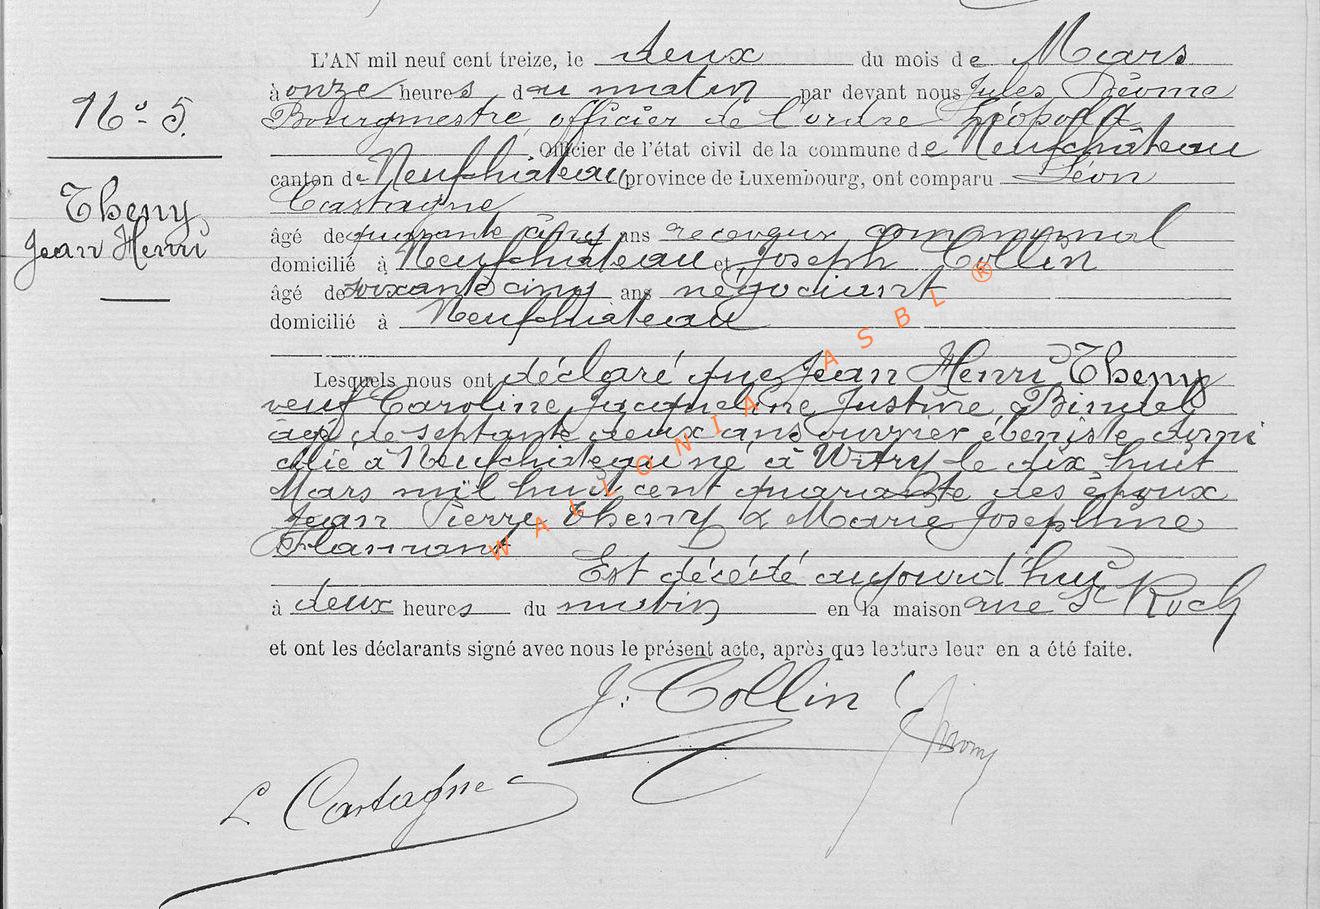 L'AN mil neuf cent treize, le deux du mois de Mars
à onze heures du matin par devant nous Jules
Bourgmestre officier de l'ordre Léopold
Officier de l'état civil de la commune de Neufchâteau
canton de Neufchâteau (province de Luxembourg, ont comparu Léon
Castagne
âgé de quarante cinq ans receveur communal
domicilié à Neufchâteau et Joseph Collin
âgé de soixante cinq ans négociant
domicilié à Neufchateau
Lesquels nous ont déclaré que Jean Henri Theny
veuf Caroline Jacqueline Justine
agé de septante deux ans ouvrier ébeniste domi
cilié à Neufchateau né à Witry le dix huit
Mars mil huit cent quarante des époux
Jean Pierre Theny & Marie Josephine
Est décédé aujourd'hui
à deux heures du matin en la maison rue St Roch
et ont les déclarants signé avec nous le présent acte, après que lecture leur en a été faite.
J. Collin
L Castagne
No 5
Theny
Jean Henri
WALLONIA ASBL ®